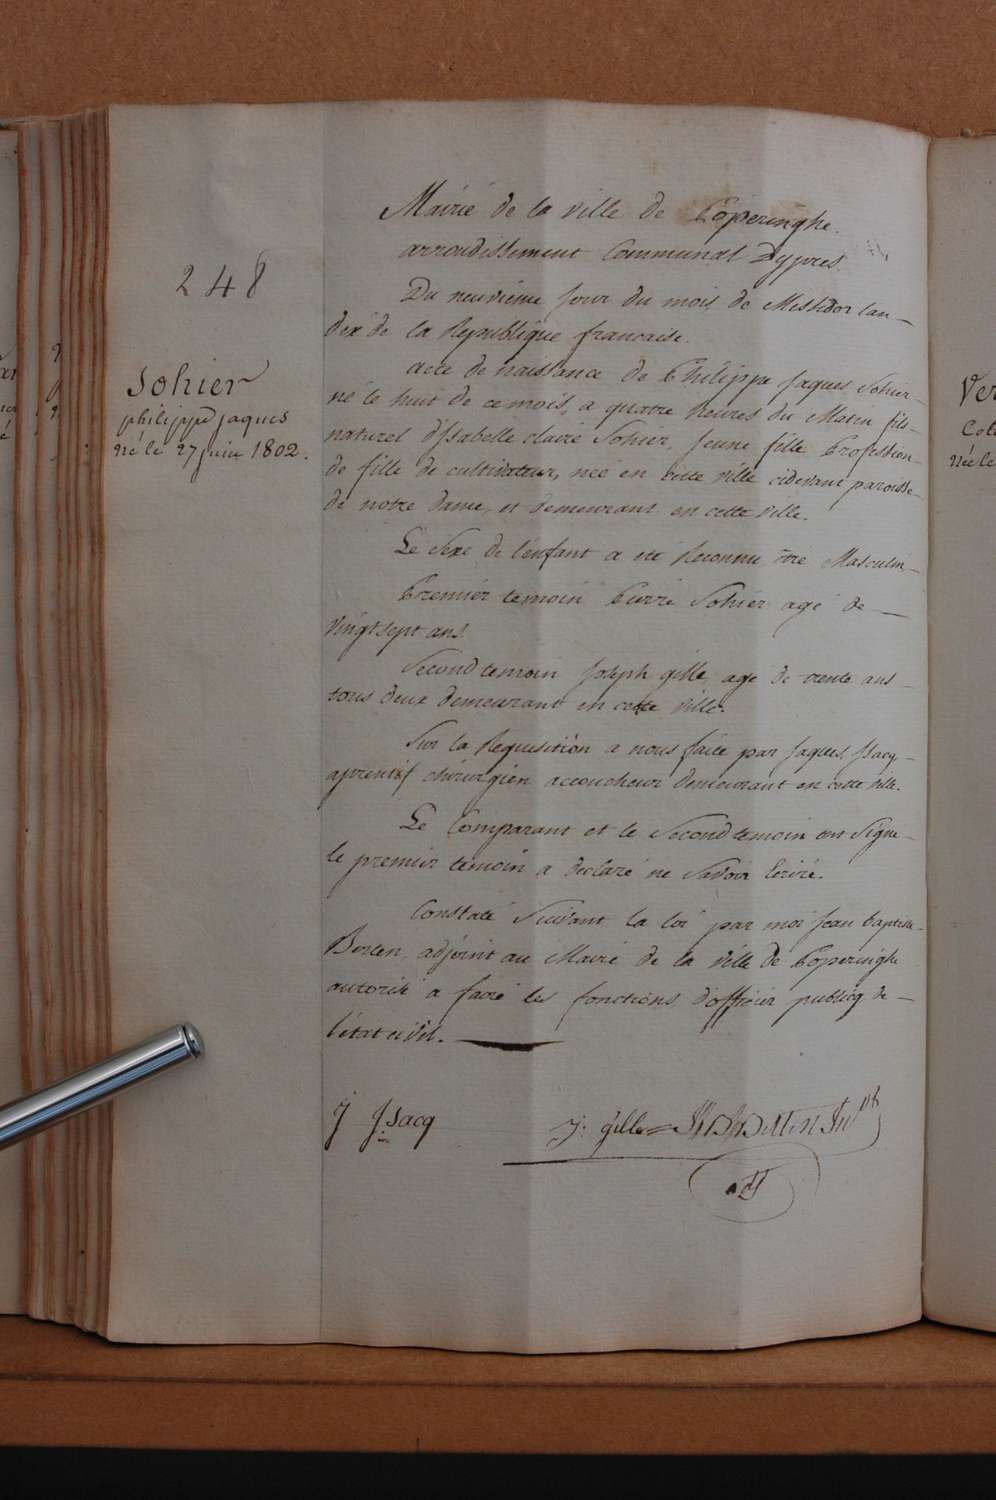 248
Sohier
philippe jaques
né le 27 juin 1802.
Mairie de la ville de Poperinghe.
arrondissement Communal Dypres
Du neuvieme Jour du mois de Messidor l'an
dix de la Republique francaise.
acte de naissance de Philippe Jaques Sohier
né le huit de ce mois, a quatre heures du Matin fils
naturel d'Isabelle claire Sohier, Jeune fille Profession
de fille de cultivateur, neé en cette ville cidevant paroisse
de notre dame, et demeurant en cette ville.
Le Sexe de l'enfant a eté Reconnu être Masculin
Premier temoin Pierre Sohier agé de
vingt sept ans.
Second temoin Joseph gille, agé de trente ans
tous deux demeurant en cette ville.
Sur la Requisition a nous faite par Jaques Isacq
aprentif chirurgien accoucheur demeurant en cette ville.
Le Comparant et le Second temoin ont Signé
le premier temoin a declaré ne Savoir Ecrire.
Constaté Suivant la loi par moi Jean baptiste
Berten, adjoint au Maire de la ville de Poperinghe
autorisé a faire les fonctions d'officier publicq de
l'état civil.
J Jsacq
J: gille
adj
Ver
Née le